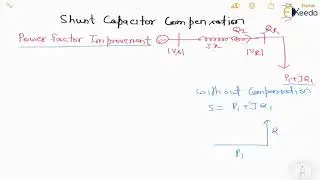 Shunt Capacitor Compensation
Power factor Improvement
|Vs| JX Q2 |VR| QR
P1+JQ1
Without Compensation
S = P1+JQ1
Q
P1
Ekeeda